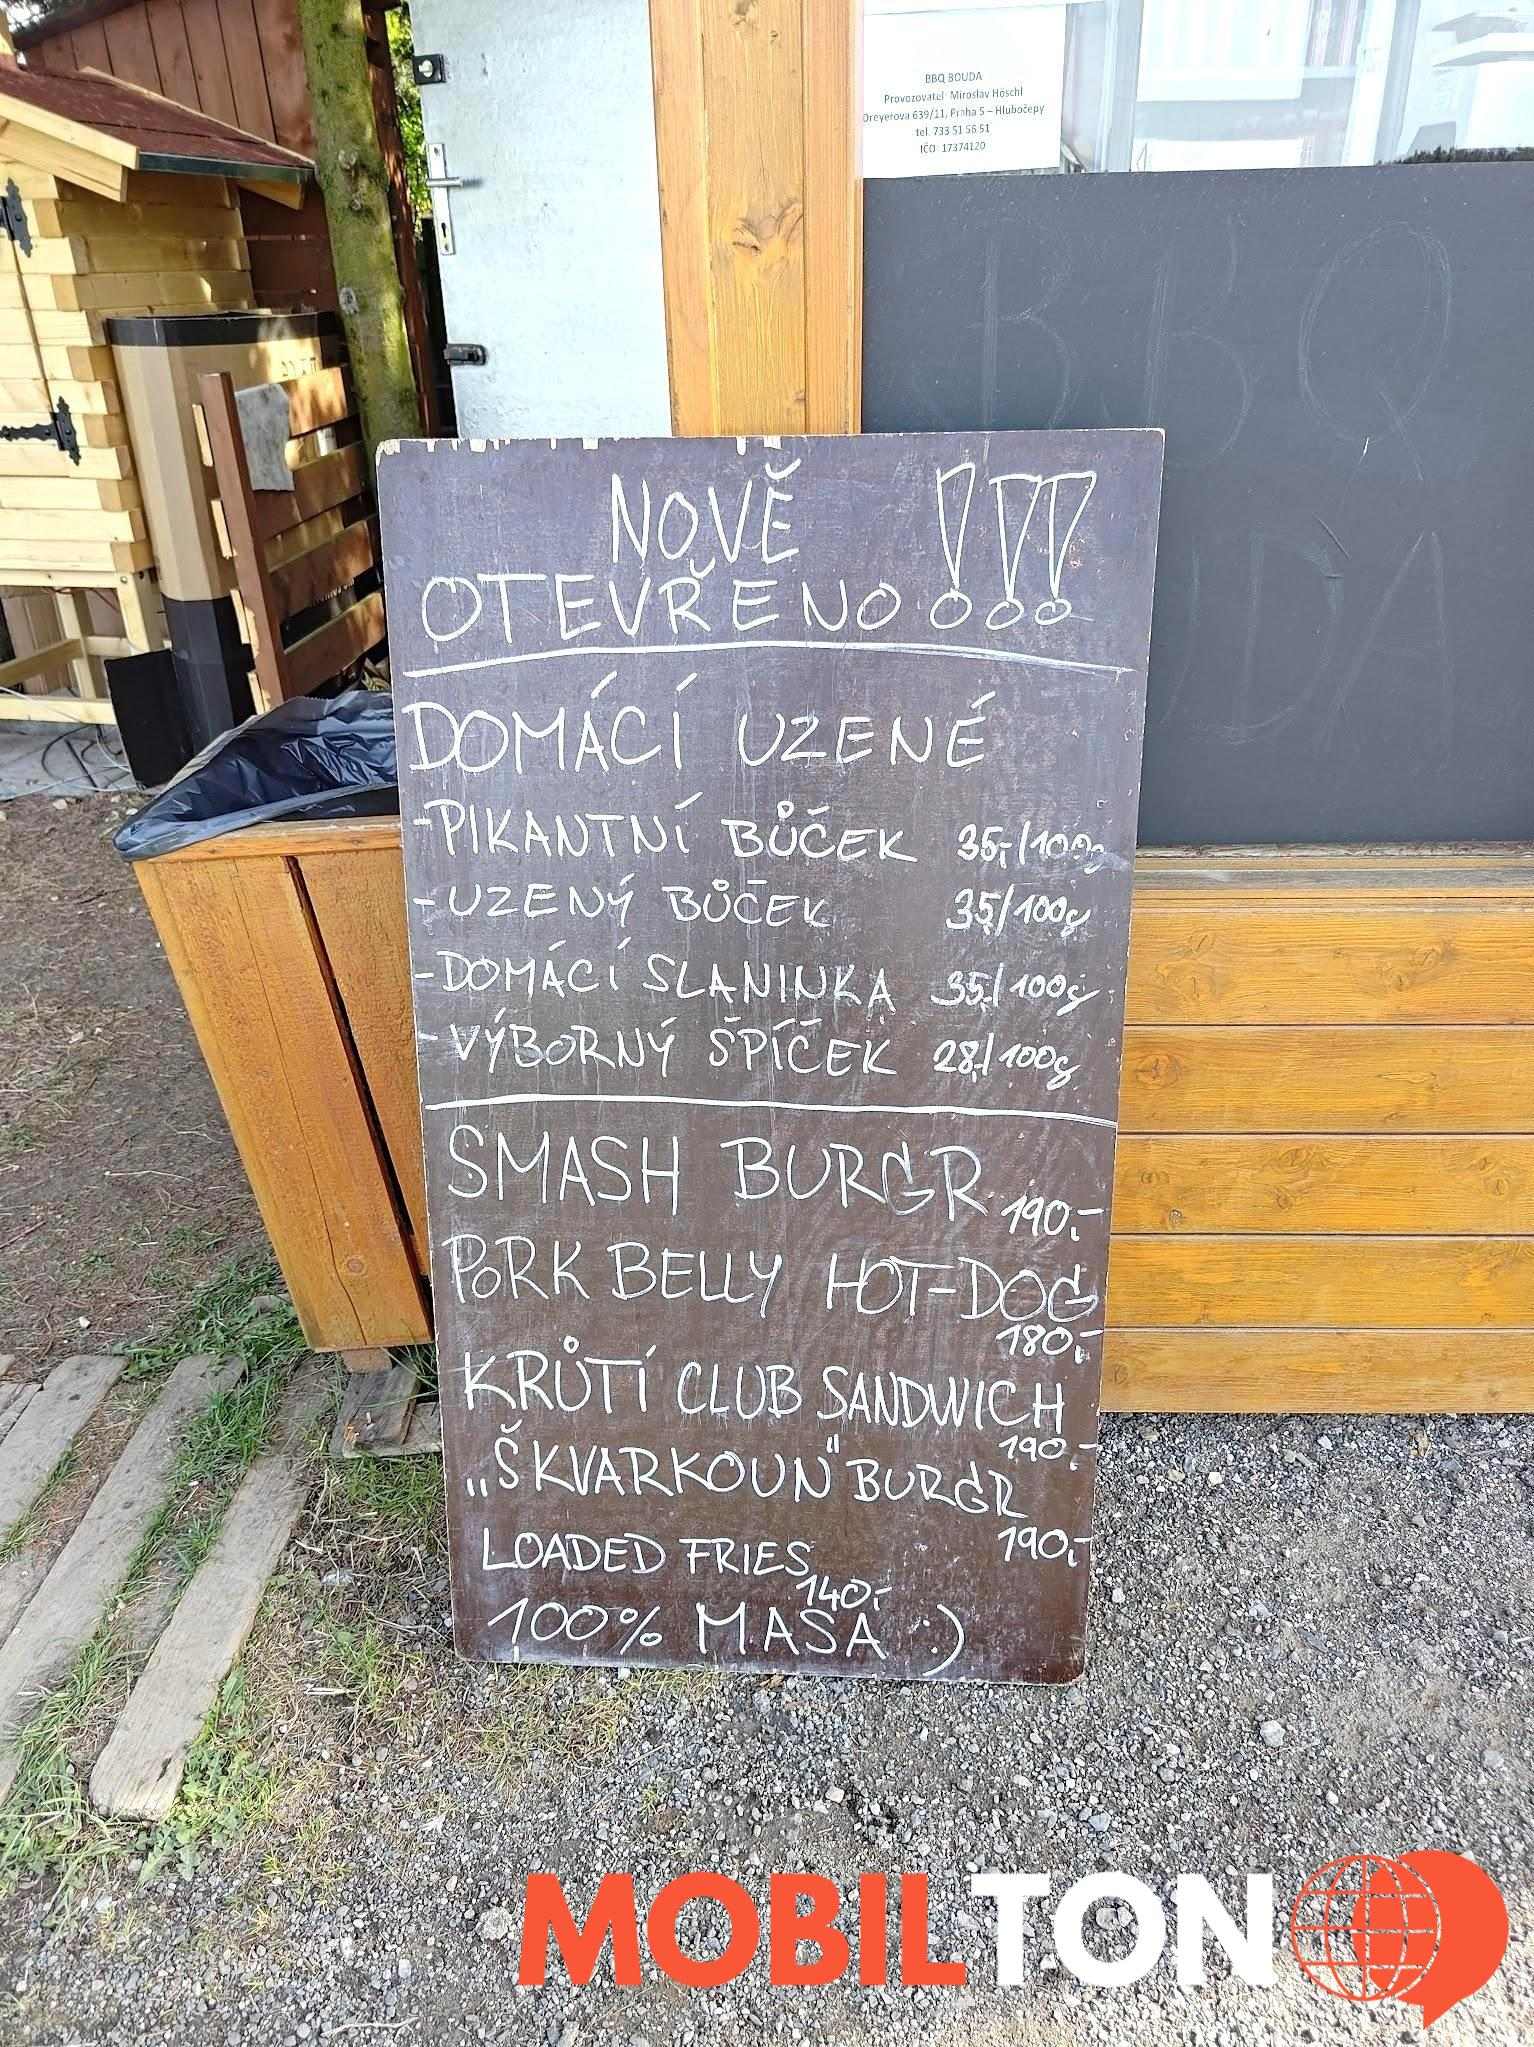 BBQ BOUDA
Provozovatel: Miroslav Höschl
Dreyerova 639/11, Praha 5 – Hlubočepy
tel. 733 51 56 51
IČO 17374120
BBQ
UDA
NOVĚ
OTEVŘENO!!!
DOMÁCÍ UZENÉ
-PIKANTNÍ BŮČEK 35,-/100g
-UZENÝ BŮČEK 35,/100g
-DOMÁCÍ SLANINKA 35,-/100g
-VÝBORNÝ ŠPÍČEK 28,-/100g
SMASH BURGR
190,-
PORK BELLY HOT-DOG
180,-
KRŮTÍ CLUB SANDWICH
190,-
„ŠKVARKOUN" BURGR
190,-
LOADED FRIES
140,-
100% MASA :)
MOBILTON